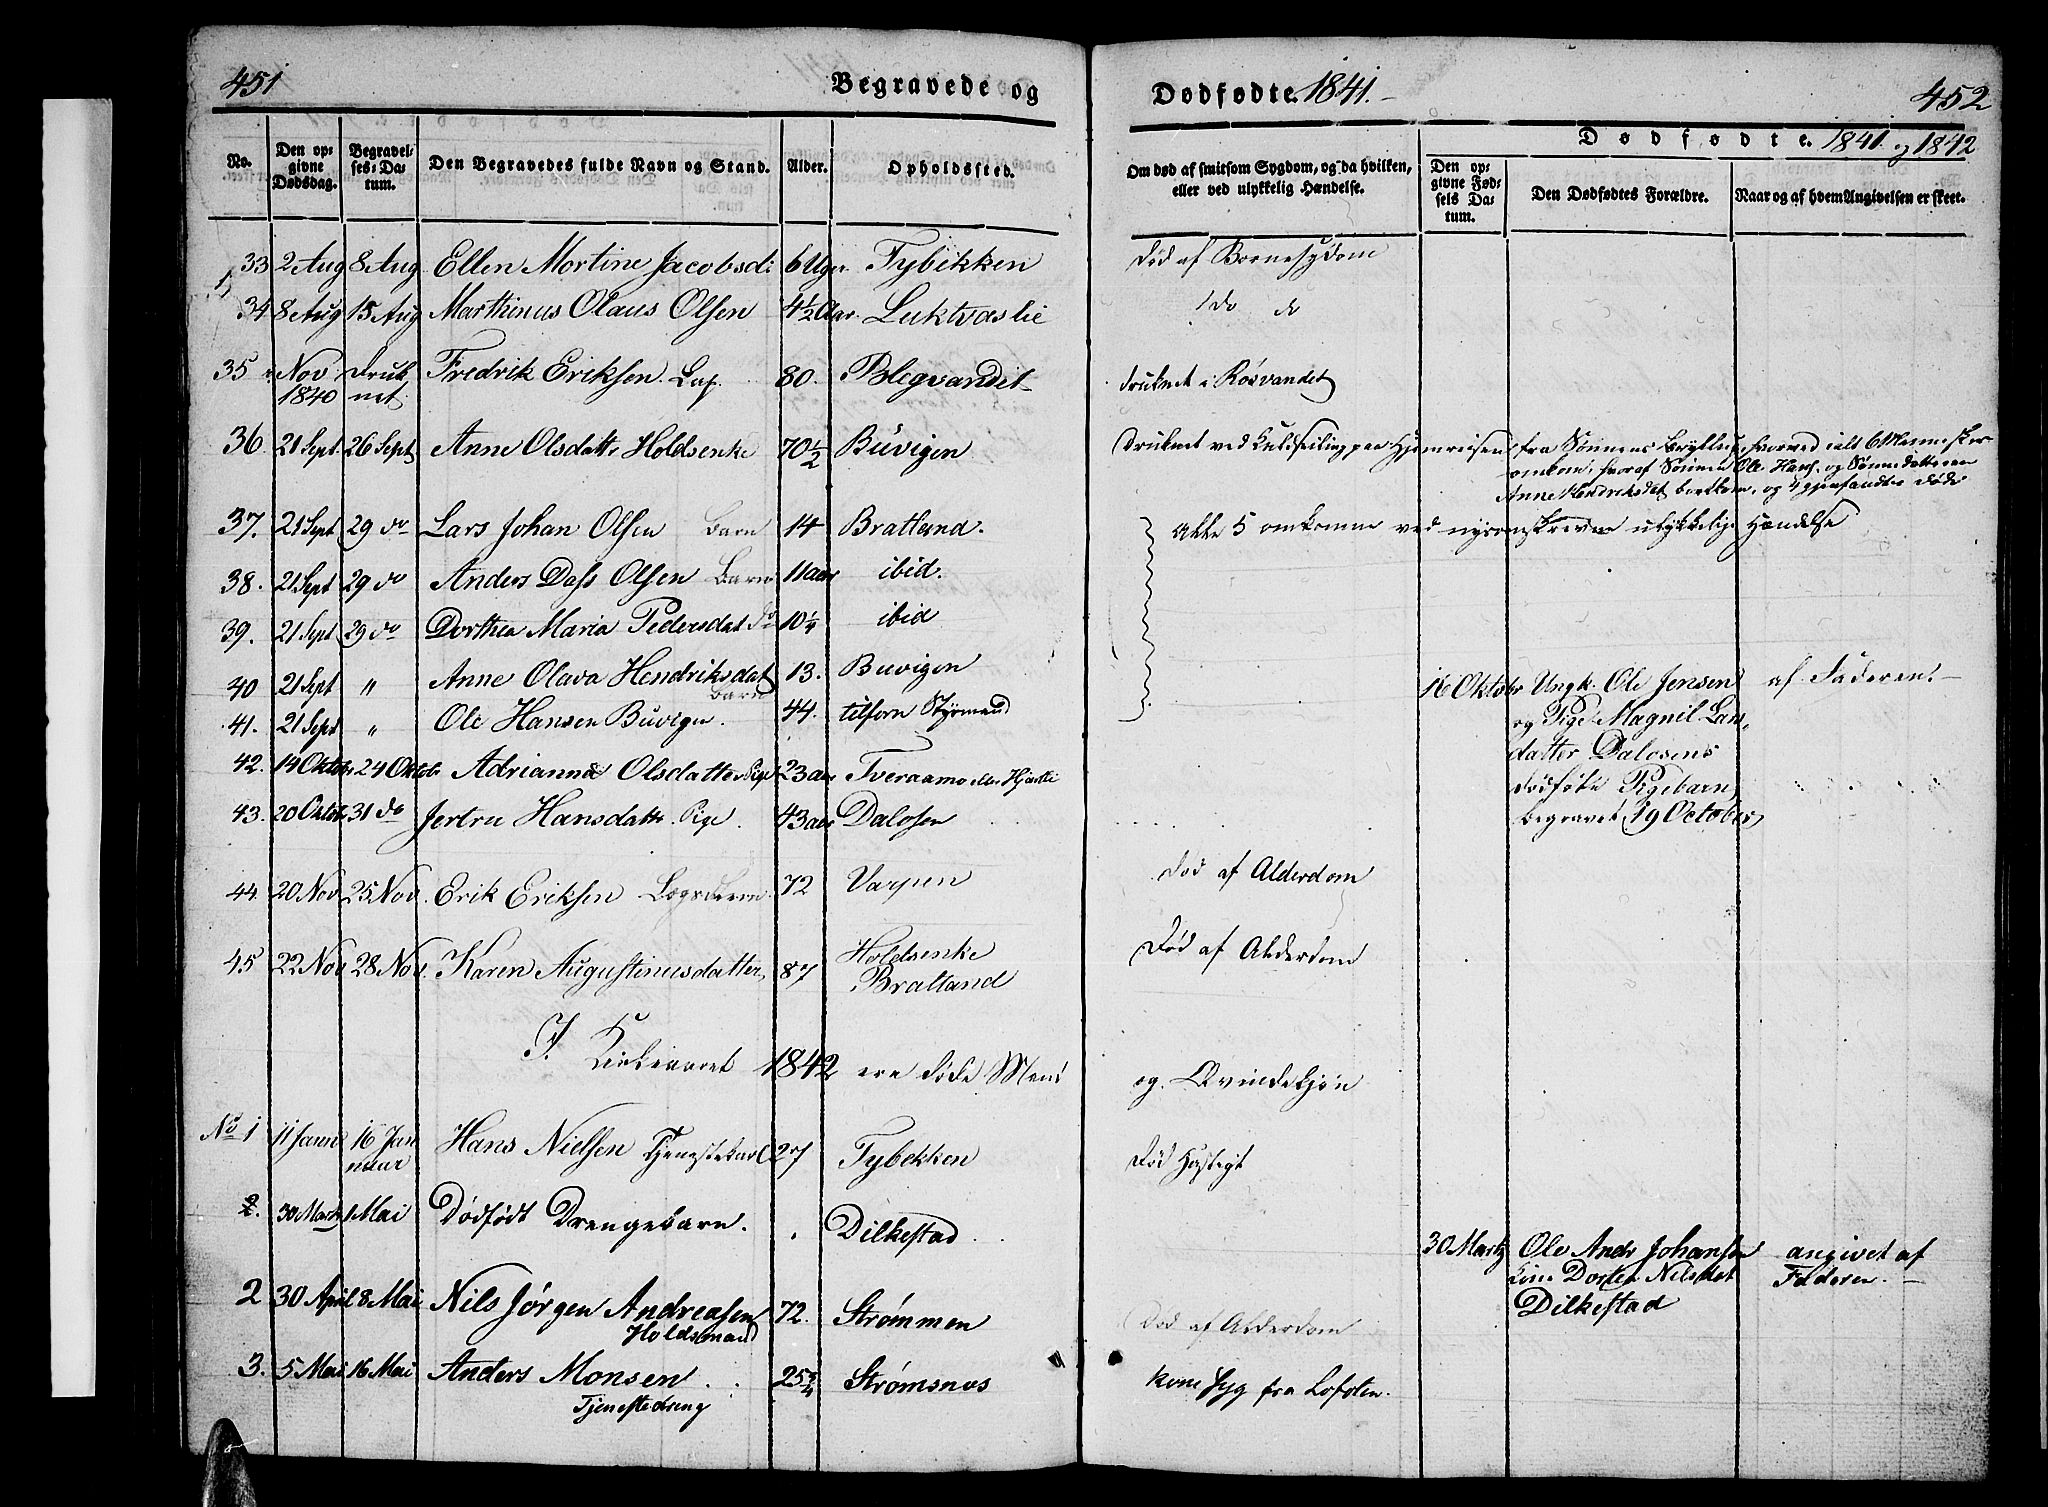 451
Begravede og
Dødfødte. 1841.
452
Dødfødte. 1841. og 1842
No.
Den opgivne Dødsdag.
Begravelses-Datum.
Den Begravedes fulde Navn og Stand.
Alder.
Opholdssted.
Om død af smitsom Sygdom, og da hvilken, eller ved ulykkelig Hændelse.
Den opgivne Fødsels Datum.
Den Dødfødtes Forældre.
Naar og af hvem Angivelsen er skeet.
33 2 Aug 8 Aug Ellen Mortine Jacobsd: 6 Uger Tybekken Død af Bornesygdom
34 8 Aug 15 Aug Marthinus Olaus Olsen 4½ Aar. Luktvaslie do do
35 Nov 1840 Druknet Fredrik Eriksen Lap. 80. Blegvandet druknet i Røsvandet
36 21 Sept. 26 Sept Anne Olsdattr Holdsenke 70½ Buvigen Druknet ved Kuldseiling paa Hjemreisen fra Sønnens Bryllup, hvorved ialt 6 Mennesker
omkom, hvoraf Sønnen Ole Hans. og Sønnedatteren
Anne Hendriksdat bortkom, og 4 gjenfandtes døde
37. 21 Sept 29 do Lars Johan Olsen Barn 14 Bratland. Alle 5 omkomne ved nysomskrevne ulykkelige Hændelse
38. 21 Sept 29 do Anders Dass Olsen Barn 11 aar ibid.
39. 21 Sept 29 do Dorthea Maria Pedersdat do 10¼ ibid
40 21 Sept " Anne Olava Hendriksdat Barn 13. Buvigen
41. 21 Sept " Ole Hansen Buvigen. 44. tilforn Styrmand
16 Oktobr Ungk. Ole Jensen af Faderen.
og Pige Magnil Lars-
datter Dalosens
dødføte Pigebarn,
begravet 19 October
42. 14 Oktobr 24 Oktobr Adrianna Olsdatter Pige 23 aar Tveraamo eller Hjartli
43. 20 Oktobr 31 do Jertru Hansdattr. Pige. 43 aar Dalosen
44. 20 Nov 25 Nov. Erik Eriksen Lægdslem 72 Varpen Død af Alderdom
45 22 Nov 28 Nov. Karen Augustinusdatter, 87 Holdsenke Bratland Død af Alderdom
I Kirkeaaret 1842 ere døde Mend og Qvindekjøn
No 1 11 Janua 16 Januar Hans Nielsen Tjenestekarl 27 Tybekken Død Hastigt
2. 30 Marts 1 Mai Dødfødt Drengebarn. Dilkestad
30 Marts Ole Andr Johansen angivet af
Kone Dortea Nilsdat Faderen.
Dilkestad
2 30 April 8 Mai Nils Jørgen Andreasen Holdsmand 72. Strømmen Død af Alderdom
3. 5 Mai 16 Mai Anders Monsen Tjenestedreng 25¾ Strømsnæs kom syg fra Lofoten.